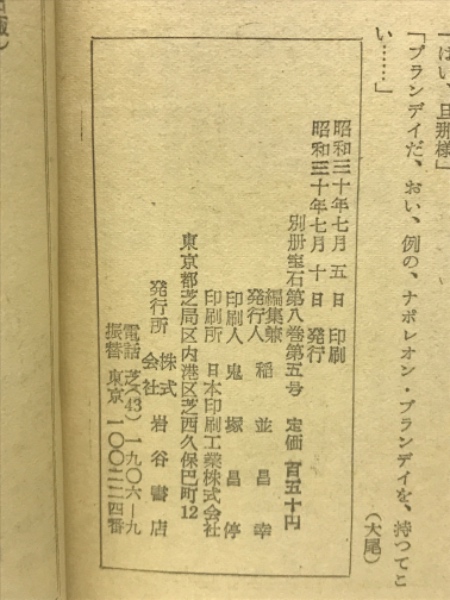 「はい、旦那様」
「ブランデイだ、おい、例の、ナポレオン・ブランデイを、持つてこ
い……」
（大尾）
昭和三十年七月五日 印刷
昭和三十年七月十日 発行
別册宝石第八巻第五号 定価百五十円
編集兼
発行人 稲並昌幸
印刷人 鬼塚昌停
印刷所 日本印刷工業株式会社
東京都芝局区内港区芝西久保巴町12
発行所 株式会社 岩谷書店
電話 芝(43) 一九〇六―九
振替 東京 一〇〇三二四番